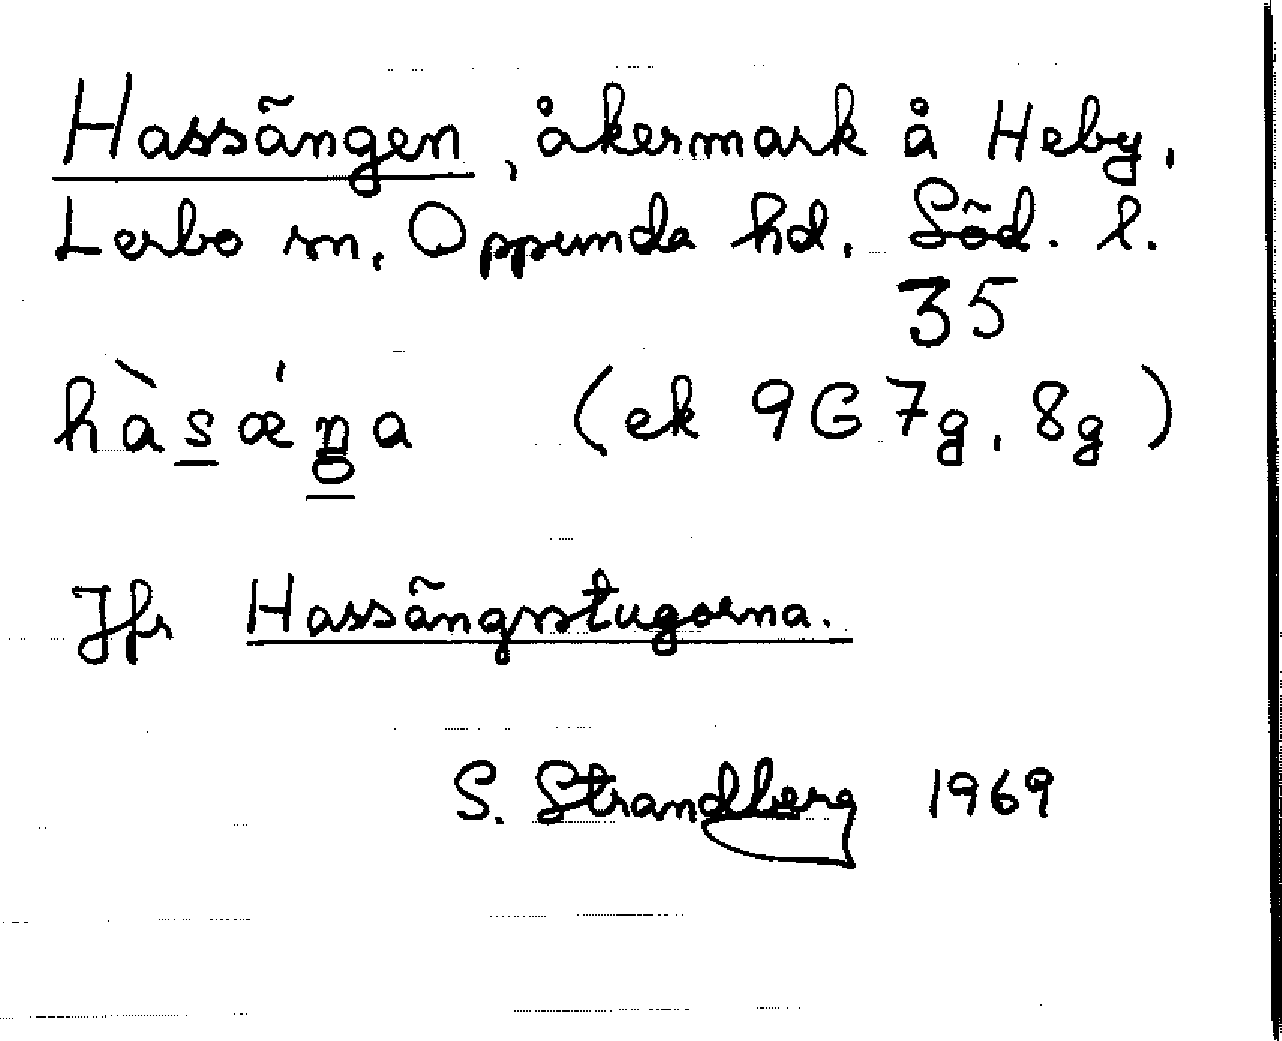 Hassängen, åkermark å Heby,
Lerbo sn, Oppunda hd, Söd. l.
35
hàsǽŋa (ek 9G7g, 8g)
Jfr Hassängsstugorna.
S. Strandberg 1969